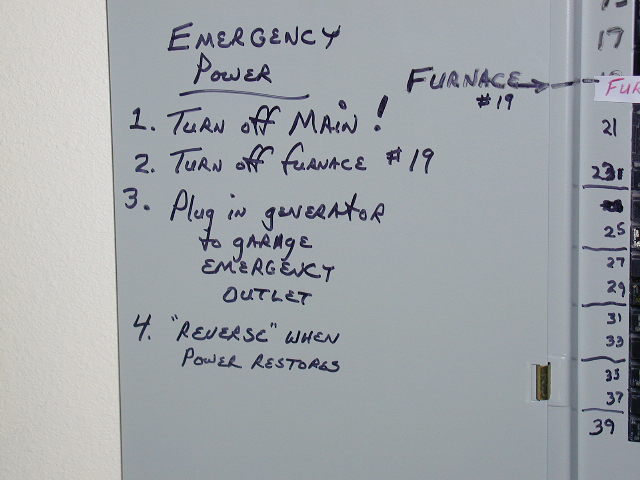 EMERGENCY
POWER
FURNACE
#19
1. TURN off MAIN!
2. TURN off furnace #19
3. Plug in generator
to garage
EMERGENCY
OUTLET
4. "REVERSE" WHEN
POWER RESTORES
17
FUR
21
23
25
27
29
31
33
35
37
39